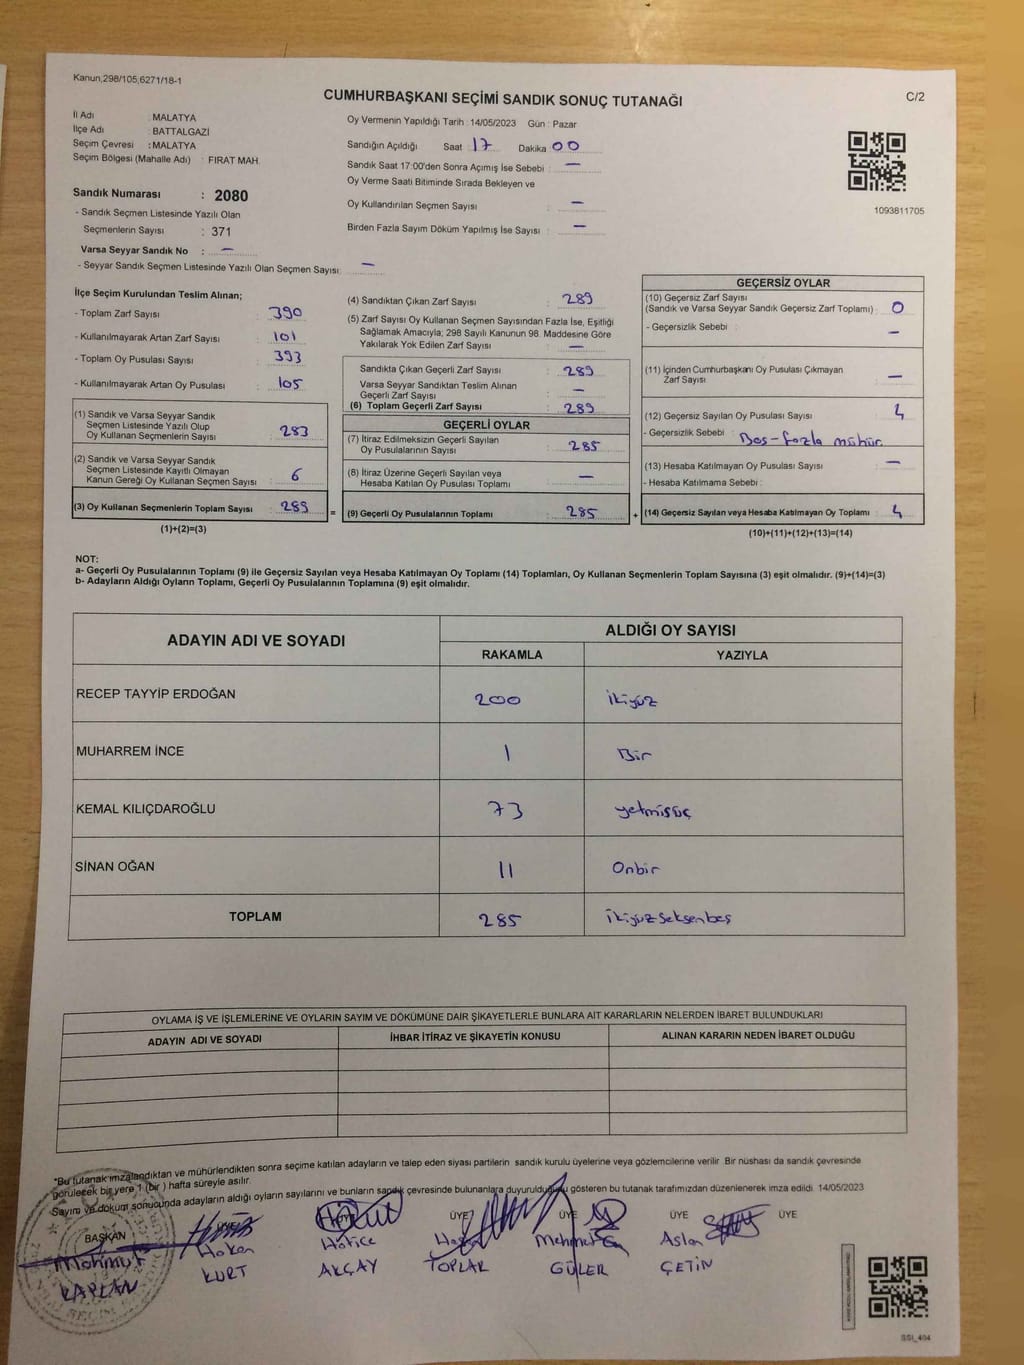 Kanun,298/105;6271/18-1
C/2
CUMHURBAŞKANI SEÇİMİ SANDIK SONUÇ TUTANAĞI
İl Adı : MALATYA
İlçe Adı : BATTALGAZİ
Seçim Çevresi : MALATYA
Seçim Bölgesi (Mahalle Adı) : FIRAT MAH.
Sandık Numarası : 2080
- Sandık Seçmen Listesinde Yazılı Olan
Seçmenlerin Sayısı : 371
Varsa Seyyar Sandık No : —
- Seyyar Sandık Seçmen Listesinde Yazılı Olan Seçmen Sayısı: —
Oy Vermenin Yapıldığı Tarih : 14/05/2023 Gün : Pazar
Sandığın Açıldığı Saat 17 Dakika 00
Sandık Saat 17:00'den Sonra Açımış İse Sebebi : —
Oy Verme Saati Bitiminde Sırada Bekleyen ve
Oy Kullandırılan Seçmen Sayısı : —
Birden Fazla Sayım Döküm Yapılmış İse Sayısı : —
1093811705
İlçe Seçim Kurulundan Teslim Alınan;
- Toplam Zarf Sayısı : 390
- Kullanılmayarak Artan Zarf Sayısı : 101
- Toplam Oy Pusulası Sayısı : 393
- Kullanılmayarak Artan Oy Pusulası : 105
(1) Sandık ve Varsa Seyyar Sandık
Seçmen Listesinde Yazılı Olup
Oy Kullanan Seçmenlerin Sayısı : 283
(2) Sandık ve Varsa Seyyar Sandık
Seçmen Listesinde Kayıtlı Olmayan
Kanun Gereği Oy Kullanan Seçmen Sayısı : 6
(3) Oy Kullanan Seçmenlerin Toplam Sayısı : 289
(1)+(2)=(3)
=
(4) Sandıktan Çıkan Zarf Sayısı : 289
(5) Zarf Sayısı Oy Kullanan Seçmen Sayısından Fazla İse, Eşitliği
Sağlamak Amacıyla; 298 Sayılı Kanunun 98. Maddesine Göre
Yakılarak Yok Edilen Zarf Sayısı : —
Sandıkta Çıkan Geçerli Zarf Sayısı : 289
Varsa Seyyar Sandıktan Teslim Alınan
Geçerli Zarf Sayısı : —
(6) Toplam Geçerli Zarf Sayısı : 289
GEÇERLİ OYLAR
(7) İtiraz Edilmeksizin Geçerli Sayılan
Oy Pusulalarının Sayısı : 285
(8) İtiraz Üzerine Geçerli Sayılan veya
Hesaba Katılan Oy Pusulası Toplamı : —
(9) Geçerli Oy Pusulalarının Toplamı : 285
+
GEÇERSİZ OYLAR
(10) Geçersiz Zarf Sayısı
(Sandık ve Varsa Seyyar Sandık Geçersiz Zarf Toplamı) : 0
- Geçersizlik Sebebi : —
(11) İçinden Cumhurbaşkanı Oy Pusulası Çıkmayan
Zarf Sayısı : —
(12) Geçersiz Sayılan Oy Pusulası Sayısı : 4
- Geçersizlik Sebebi : Boş-fazla mühür.
(13) Hesaba Katılmayan Oy Pusulası Sayısı : —
- Hesaba Katılmama Sebebi :
(14) Geçersiz Sayılan veya Hesaba Katılmayan Oy Toplamı : 4
(10)+(11)+(12)+(13)=(14)
NOT:
a- Geçerli Oy Pusulalarının Toplamı (9) ile Geçersiz Sayılan veya Hesaba Katılmayan Oy Toplamı (14) Toplamları, Oy Kullanan Seçmenlerin Toplam Sayısına (3) eşit olmalıdır. (9)+(14)=(3)
b- Adayların Aldığı Oyların Toplamı, Geçerli Oy Pusulalarının Toplamına (9) eşit olmalıdır.
ADAYIN ADI VE SOYADI
ALDIĞI OY SAYISI
RAKAMLA YAZIYLA
RECEP TAYYİP ERDOĞAN 200 ikiyüz
MUHARREM İNCE 1 Bir
KEMAL KILIÇDAROĞLU 73 yetmişüç
SİNAN OĞAN 11 Onbir
TOPLAM 285 ikiyüzseksenbeş
OYLAMA İŞ VE İŞLEMLERİNE VE OYLARIN SAYIM VE DÖKÜMÜNE DAİR ŞİKAYETLERLE BUNLARA AİT KARARLARIN NELERDEN İBARET BULUNDUKLARI
ADAYIN ADI VE SOYADI İHBAR İTİRAZ VE ŞİKAYETİN KONUSU ALINAN KARARIN NEDEN İBARET OLDUĞU
"Bu tutanak imzalandıktan ve mühürlendikten sonra seçime katılan adayların ve talep eden siyasi partilerin sandık kurulu üyelerine veya gözlemcilerine verilir. Bir nüshası da sandık çevresinde
görülecek bir yere 1 (bir ) hafta süreyle asılır.
Sayım ve döküm sonucunda adayların aldığı oyların sayılarını ve bunların sandık çevresinde bulunanlara duyurulduğunu gösteren bu tutanak tarafımızdan düzenlenerek imza edildi. 14/05/2023
BAŞKAN ÜYE ÜYE ÜYE ÜYE ÜYE ÜYE
Mahmut Hakan Hatice Mehmet Aslan
KAPLAN KURT AKÇAY TOPLAK GÜLER ÇETİN
SSI_404